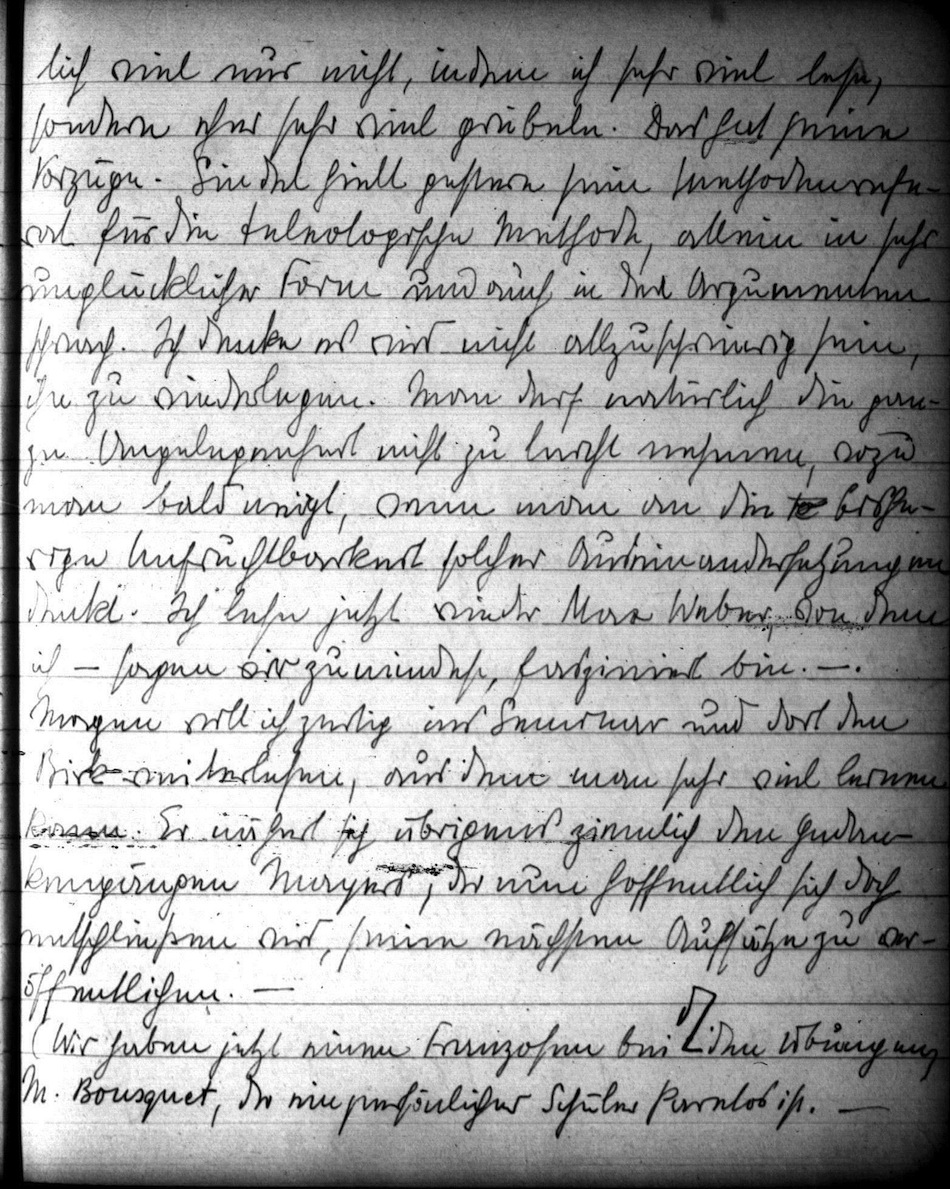 lich viel nur nicht, indem ich sehr viel lese,
sondern eher sehr viel grübeln. Das hat seine
Vorzüge. Sindel hielt gestern sein Methodenrefe-
rat für die teleologische Methode, allein in sehr
unglücklicher Form und auch in den Argumenten
schwach. Ich denke es wird nicht allzuschwierig sein,
ihn zu wiederlegen. Man darf natürlich die gan-
ze Angelegenheit nicht zu leicht nehmen, wozu
man bald neigt, wenn man an die bishe-
rige Unfruchtbarkeit solcher Auseinandersetzungen
denkt. Ich lese jetzt wieder Max Weber, von dem
ich – sagen wir zumindest, fasziniert bin. –.
Morgen will ich zeitig ins Seminar und dort den
Birk weiterlesen, aus dem man sehr viel lernen
kann. Er nähert sich übrigens ziemlich den Gedan-
kengängen Mayers, der nun hoffentlich sich doch
entschließen wird, seine nächsten Aufsätze zu ver-
öffentlichen. —
(Wir haben jetzt einen Franzosen bei den Übungen,
M. Bousquet, der ein persönlicher Schüler Paretos ist. —